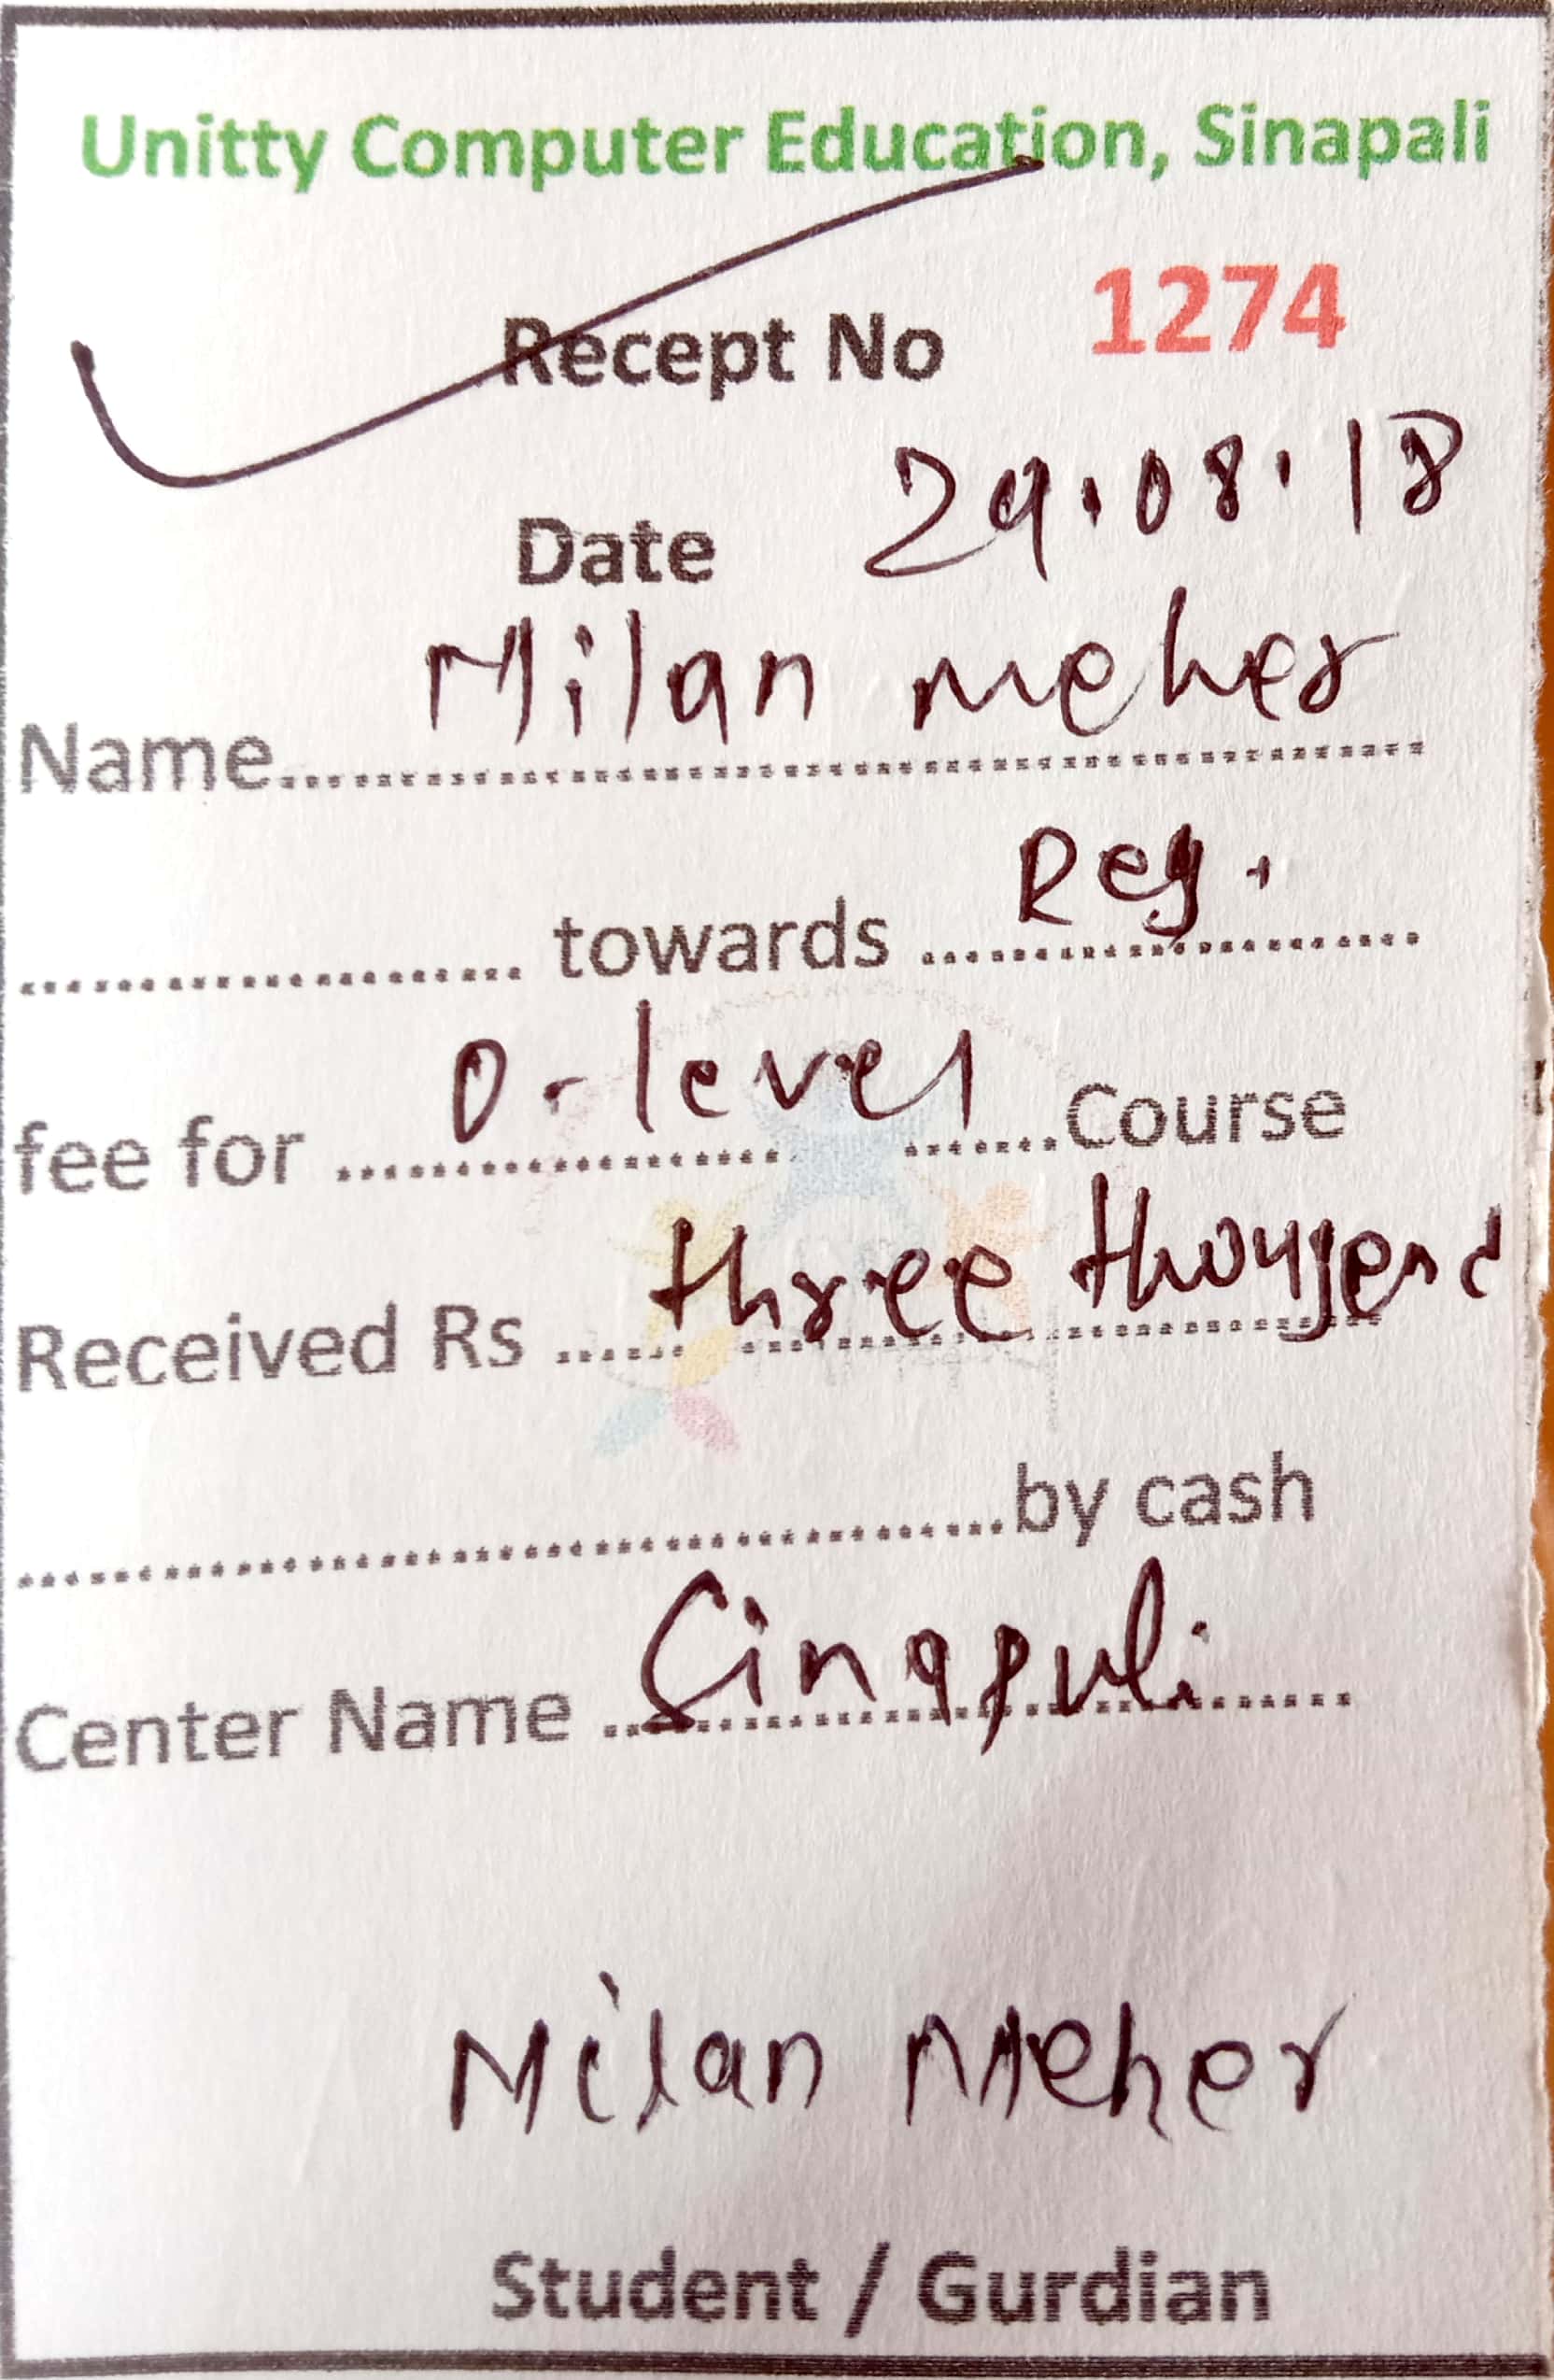 Unitty Computer Education, Sinapali
Recept No 1274
Date 29.08.18
Name Milan meher
towards Reg.
fee for O-level Course
Received Rs three thousend
by cash
Center Name Sinapali
Milan Meher
Student / Gurdian